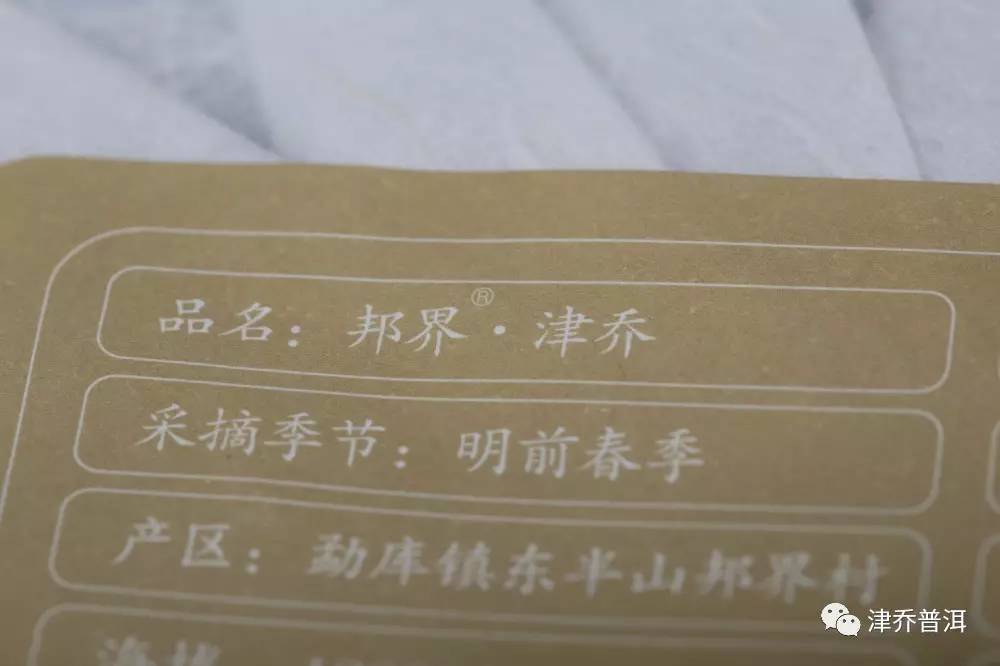 品名：邦界®·津乔
采摘季节：明前春季
产区：勐库镇东半山邦界村
海拔：
津乔普洱